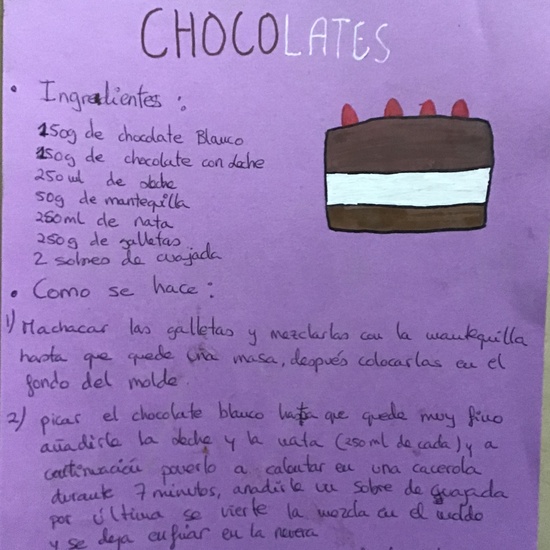 CHOCOLATES
• Ingredientes :
150g de chocolate Blanco
150g de chocolate con leche
250 ml de leche
50g de mantequilla
250ml de nata
250g de galletas
2 sobres de cuajada
• Como se hace :
1) Machacar las galletas y mezclarlas con la mantequilla
hasta que quede una masa, después colocarlas en el
fondo del molde.
2) picar el chocolate blanco hasta que quede muy fino
añadirle la leche y la nata (250ml de cada) y a
continuación ponerlo a calentar en una cacerola
durante 7 minutos, anadirle un sobre de cuajada
por última se vierte la mezcla en el molde
y se deja enfriar en la nevera